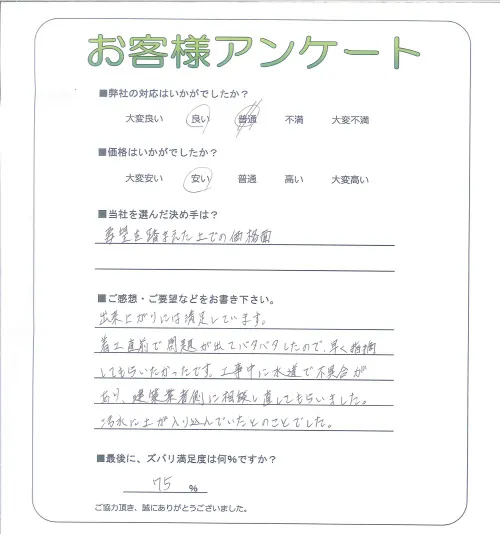 お客様アンケート
■弊社の対応はいかがでしたか？
大変良い 良い 普通 不満 大変不満
■価格はいかがでしたか？
大変安い 安い 普通 高い 大変高い
■当社を選んだ決め手は？
要望を踏まえた上での価格面
■ご感想・ご要望などをお書き下さい。
出来上がりには満足しています。
着工直前で問題が出てバタバタしたので、早く指摘
してもらいたかったです。工事中に水道で不具合が
あり、建築業者側に相談し直してもらいました。
汚水に土が入り込んでいたとのことでした。
■最後に、ズバリ満足度は何％ですか？
75 ％
ご協力頂き、誠にありがとうございました。